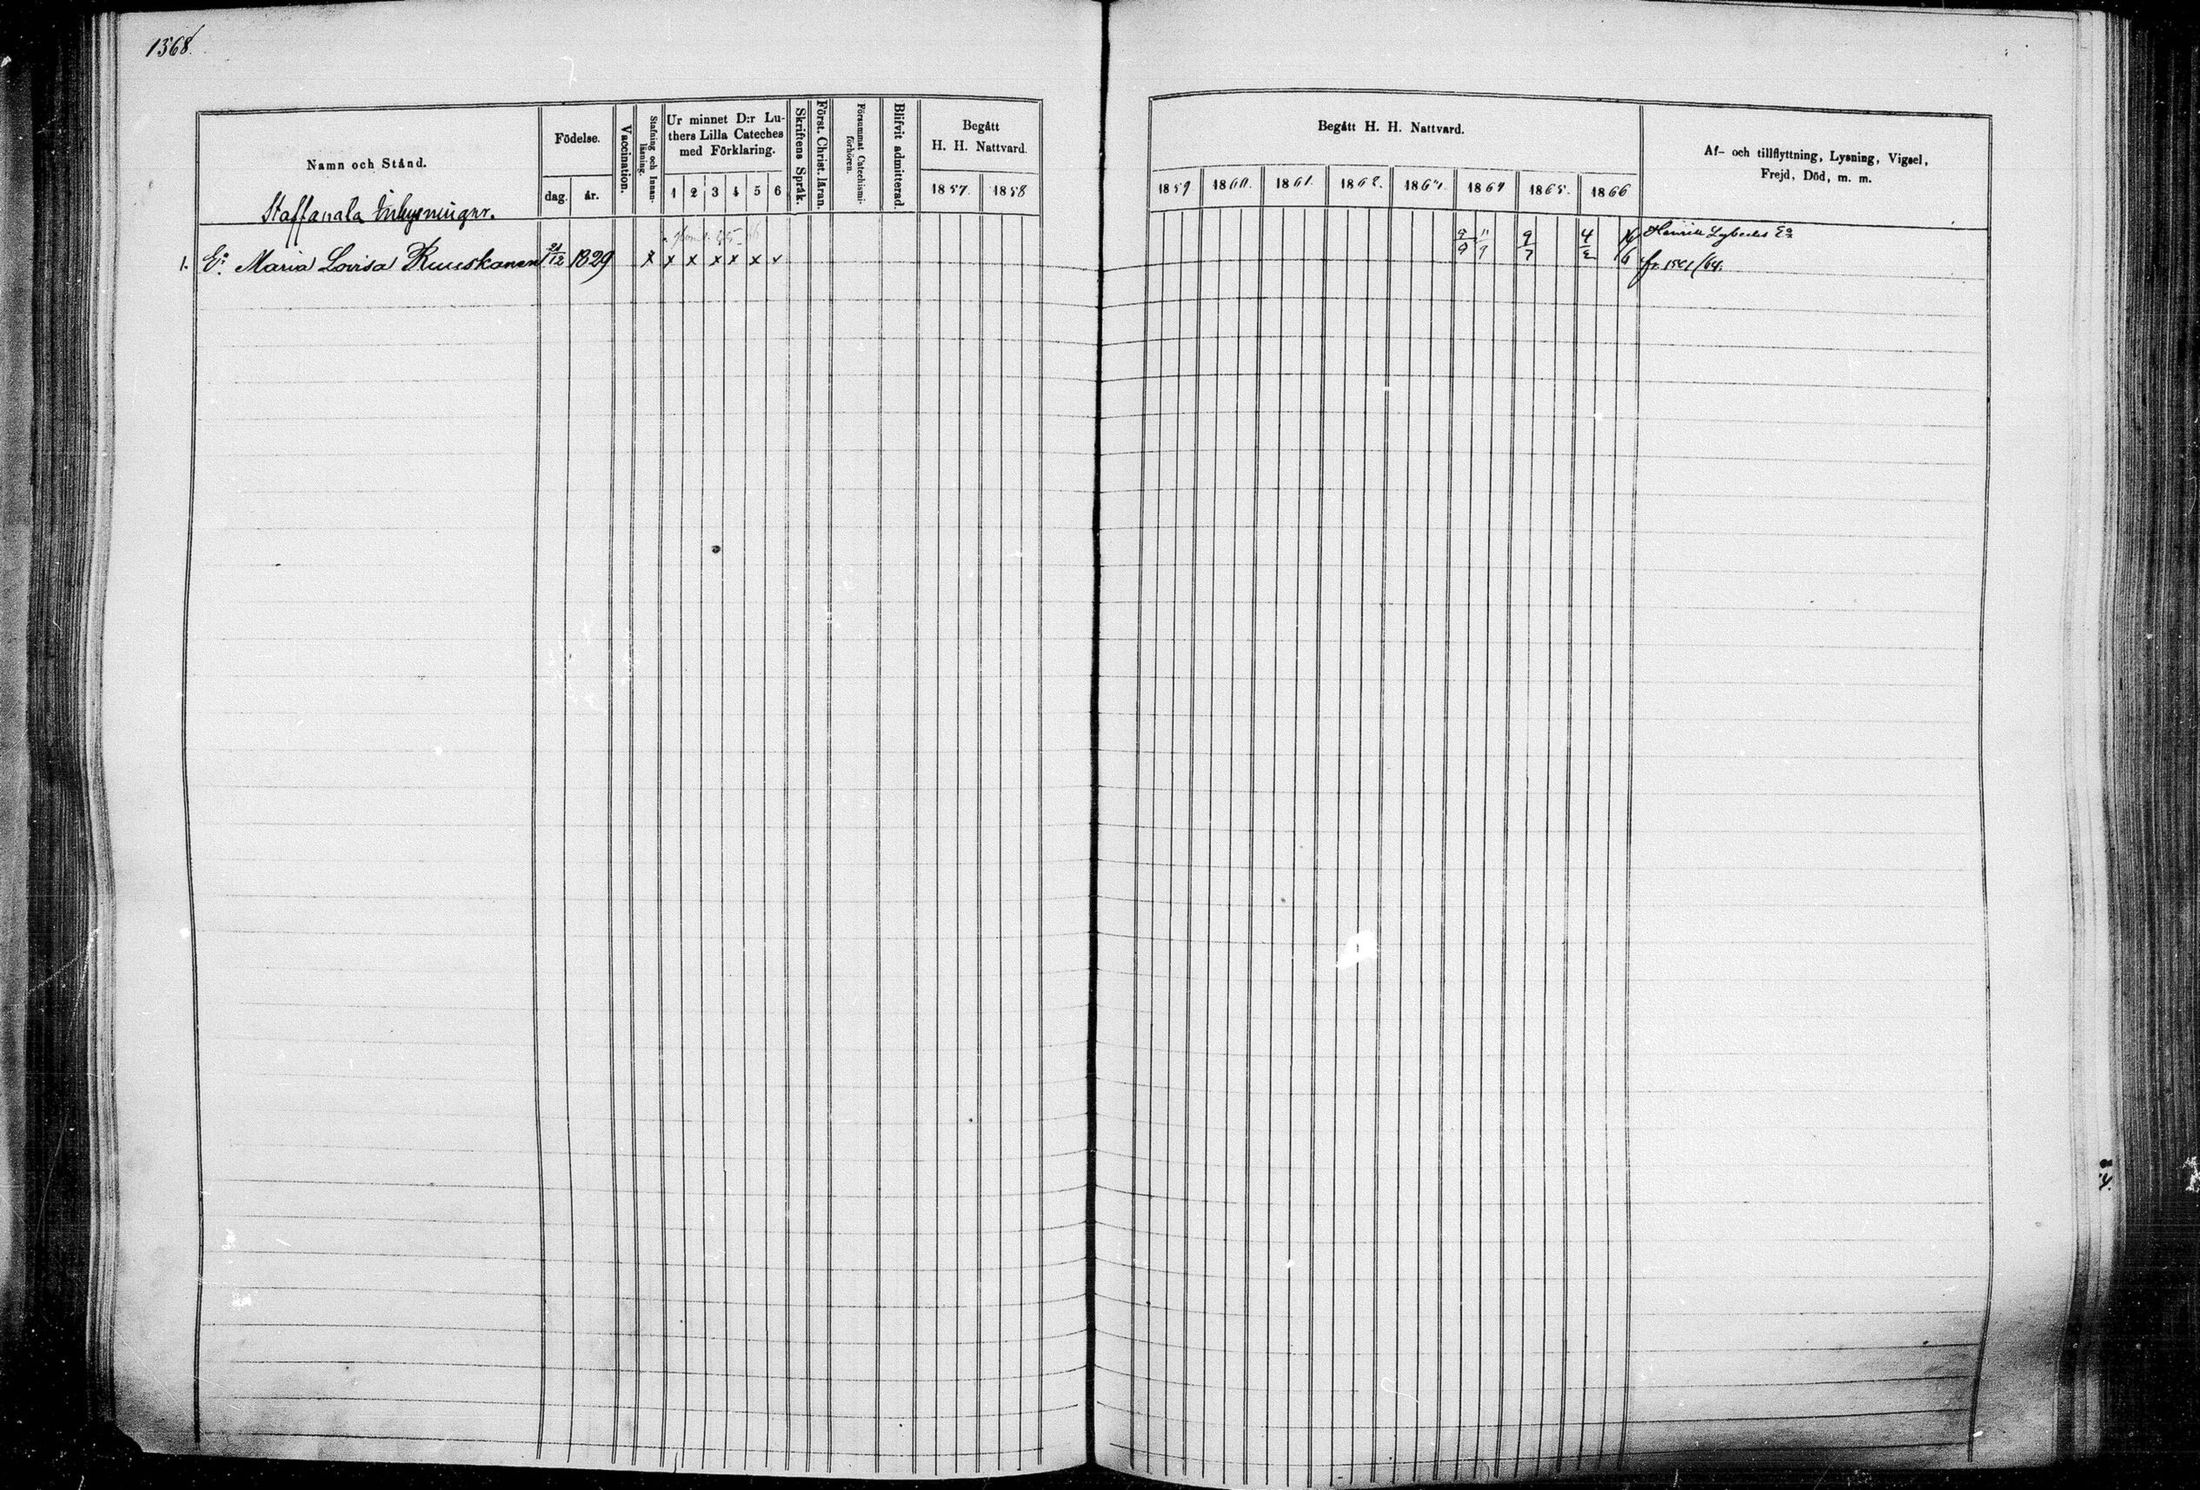 1568.
Namn och Stånd.
Födelse.
dag.
år.
Vaccination.
Stafning och Innan-
läsning.
Ur minnet D:r Lu-
thers Lilla Cateches
med Förklaring.
1 2 3 4 5 6
Skriftens Språk.
Först. Christ. läran.
Försummat Catechismi-
förhören.
Blifvit admitterad.
Begått
H. H. Nattvard.
1857. 1858
Staffanala Inhysningar.
1. Ea Maria Lovisa Ruuskanen 21/12 1829 x x x x x x x
Begått H. H. Nattvard.
1859 1860. 1861. 1862. 1863. 1864 1865. 1866
Af- och tillflyttning, Lysning, Vigsel,
Frejd, Död, m. m.
9/9 11/9 9/7 4/2 Henrik Lybecks Ea